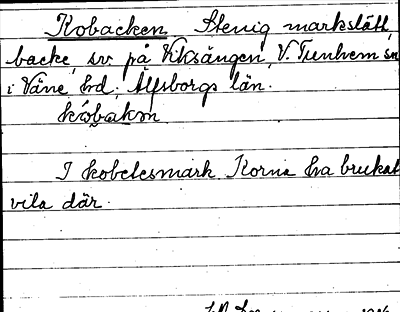 Kobacken Stenig markslätt,
backe, sv. på Viksängen, V. Tunhem sn
i Väne hd, Älfsborgs län.
kóbakɷn
I kobetesmark. Korna ha brukat
vila där.